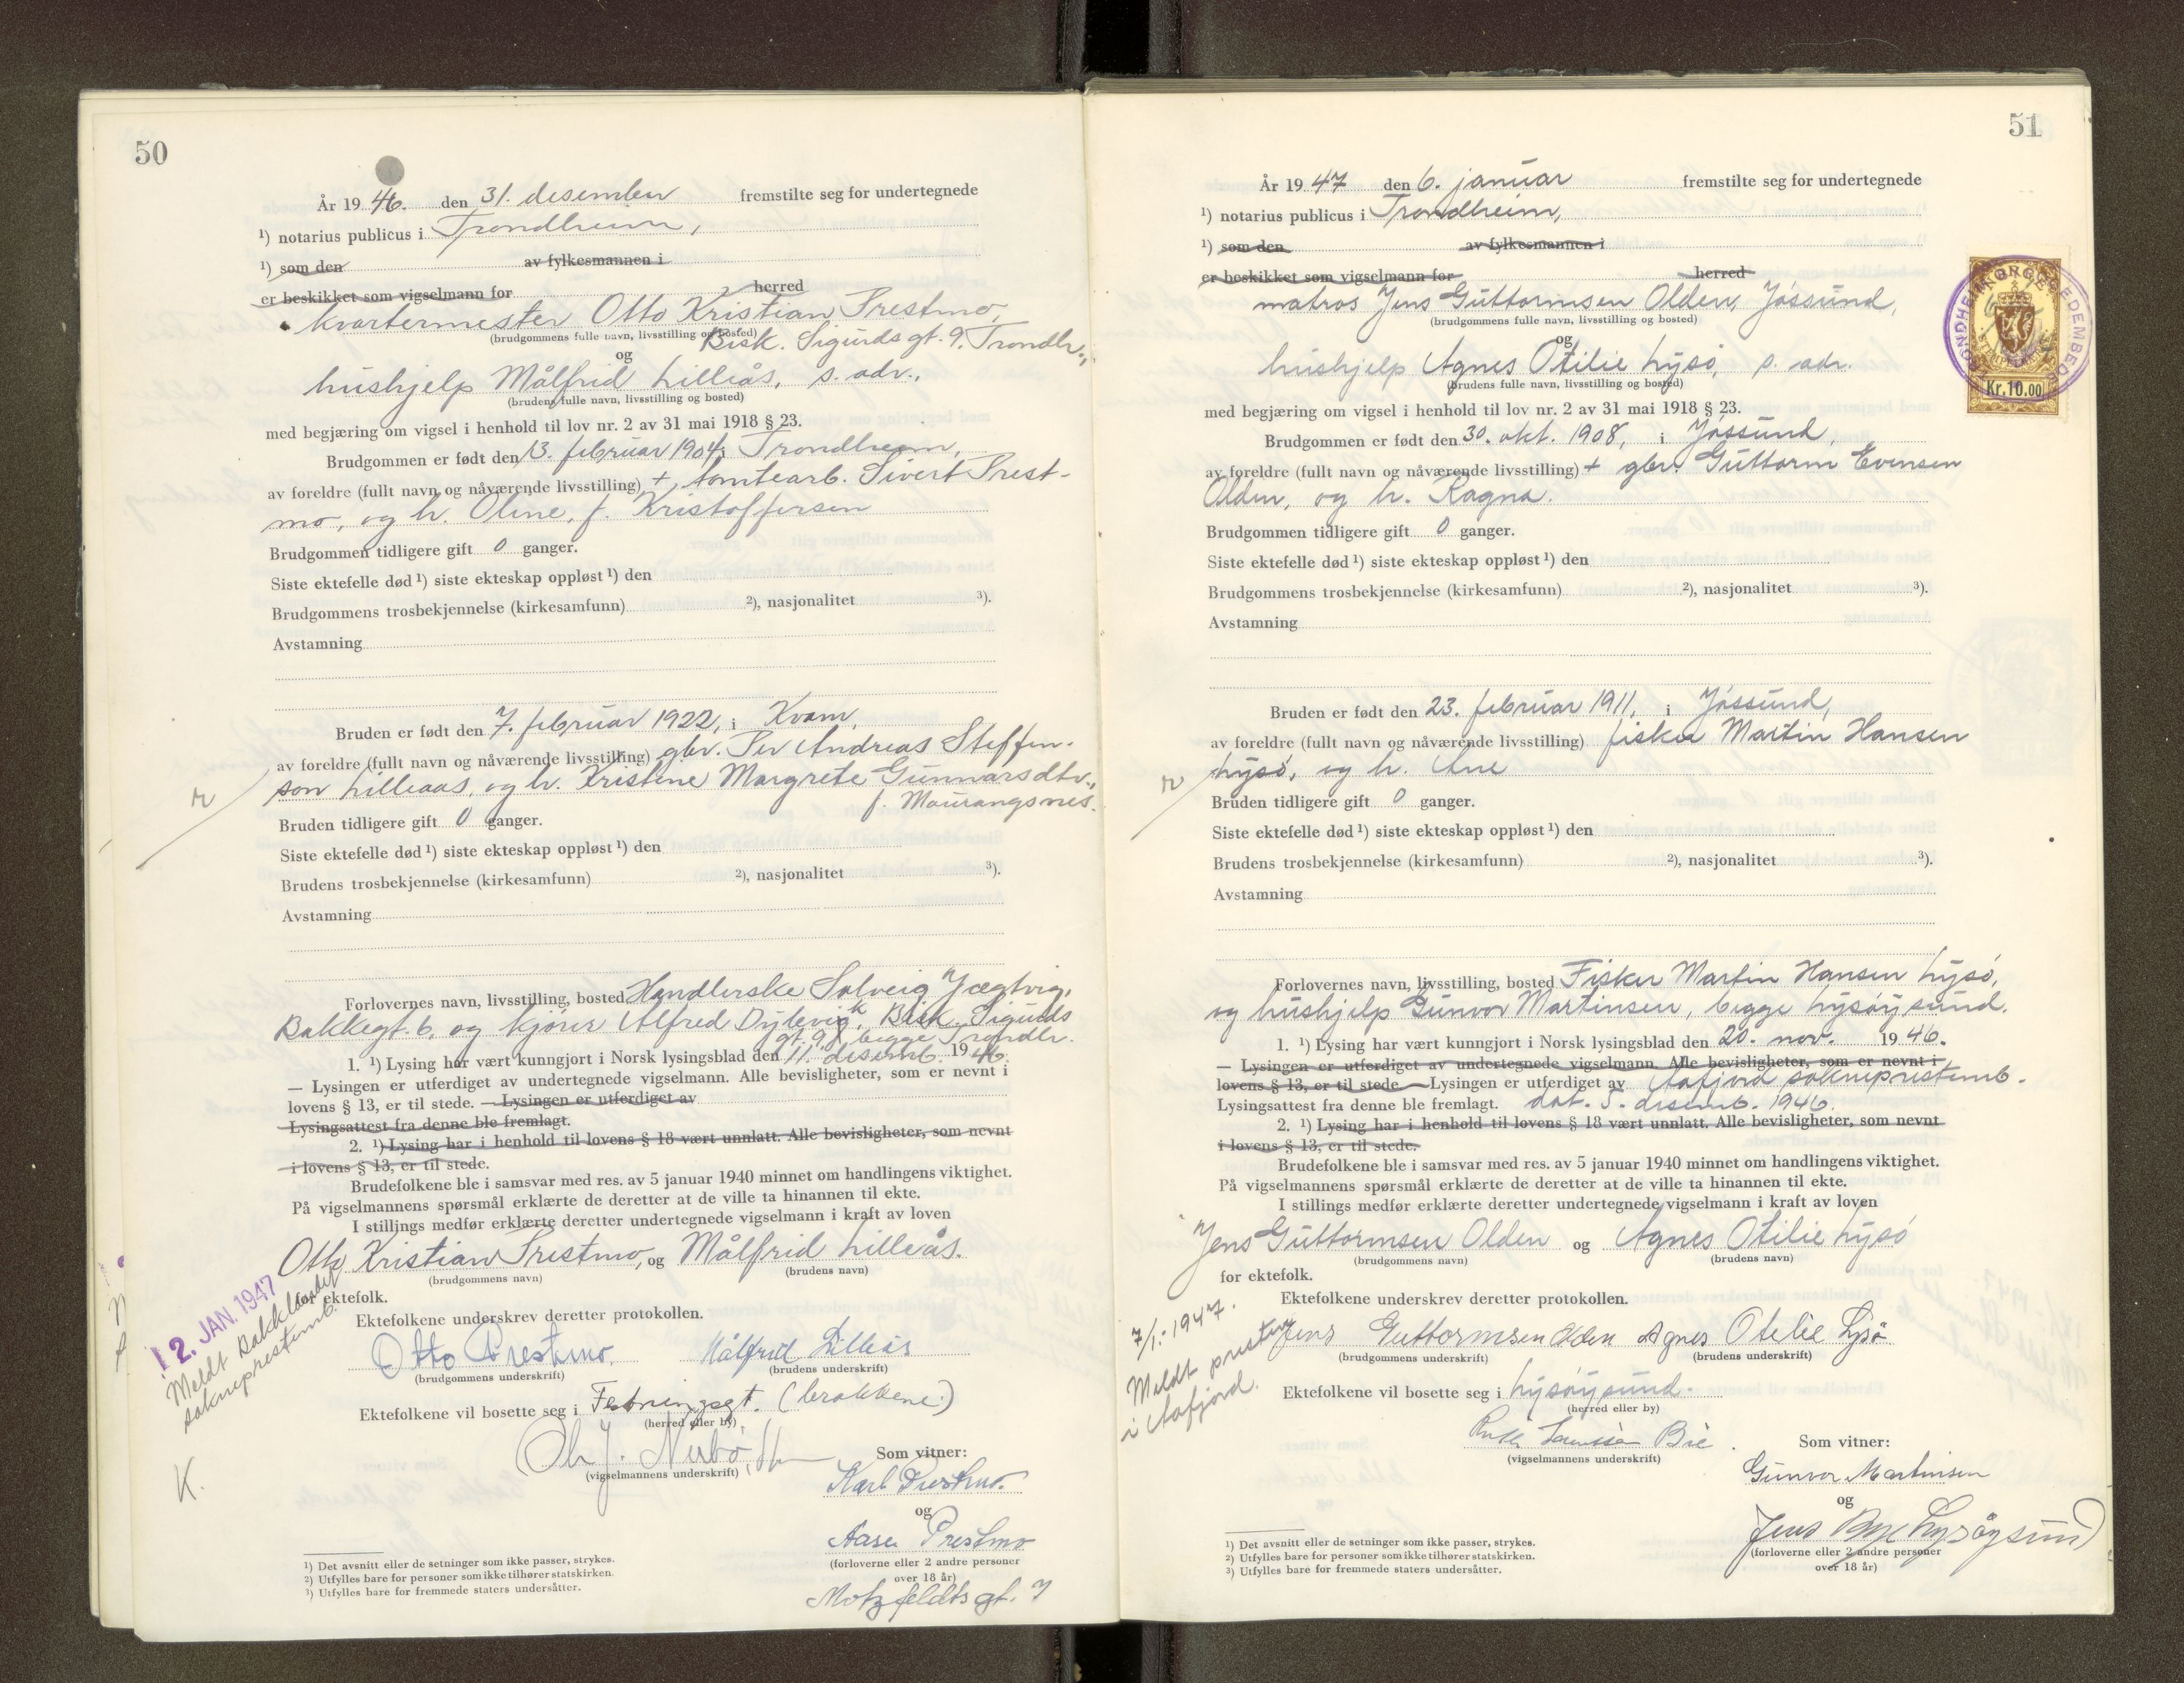 50
År 19 46. den 31. desember fremstilte seg for undertegnede
¹) notarius publicus i Trondheim,
¹) som den av fylkesmannen i
er beskikket som vigselmann for herred
kvartermester Otto Kristian Prestmo,
(brudgommens fulle navn, livsstilling og bosted) Bisk. Sigurdsgt. 9, Trondh.,
og
hushjelp Målfrid Lilleås, s. adr.,
(brudens fulle navn, livsstilling og bosted)
med begjæring om vigsel i henhold til lov nr. 2 av 31 mai 1918 § 23.
Brudgommen er født den 13. februar 1904, i Trondheim,
av foreldre (fullt navn og nåværende livsstilling) + tomtearb. Sivert Prest-
mo, og h. Oline, f. Kristoffersen
Brudgommen tidligere gift 0 ganger.
Siste ektefelle død ¹) siste ekteskap oppløst ¹) den
Brudgommens trosbekjennelse (kirkesamfunn) ²), nasjonalitet ³).
Avstamning
Bruden er født den 7. februar 1922, i Kvam,
av foreldre (fullt navn og nåværende livsstilling) gbr. Per Andreas Steffen-
son Lilleaas, og h. Kristine Margrete Gunnarsdtr.,
f. Maurangsnes.
Bruden tidligere gift 0 ganger.
Siste ektefelle død ¹) siste ekteskap oppløst ¹) den
Brudens trosbekjennelse (kirkesamfunn) ²), nasjonalitet ³).
Avstamning
Forlovernes navn, livsstilling, bosted Handlerske Solveig Jægtvig,
Bakkegt. 6, og kjører Alfred Dylevik, Bisk. Sigurds
gt. 9, begge Trondh.
1. ¹) Lysing har vært kunngjort i Norsk lysingsblad den 11. desemb. 1946.
— Lysingen er utferdiget av undertegnede vigselmann. Alle bevisligheter, som er nevnt i
lovens § 13, er til stede. — Lysingen er utferdiget av
Lysingsattest fra denne ble fremlagt.
2. ¹) Lysing har i henhold til lovens § 18 vært unnlatt. Alle bevisligheter, som nevnt
i lovens § 13, er til stede.
Brudefolkene ble i samsvar med res. av 5 januar 1940 minnet om handlingens viktighet.
På vigselmannens spørsmål erklærte de deretter at de ville ta hinannen til ekte.
I stillings medfør erklærte deretter undertegnede vigselmann i kraft av loven
Otto Kristian Prestmo, og Målfrid Lilleås.
(brudgommens navn) (brudens navn)
for ektefolk.
Ektefolkene underskrev deretter protokollen.
2. JAN. 1947
Meldt Bakklandet
sokneprestemb.
Otto Prestmo. Målfrid Lilleås
(brudgommens underskrift) (brudens underskrift)
Ektefolkene vil bosette seg i Festningsgt. (brakkene)
(herred eller by)
(vigselmannens underskrift)
Som vitner:
K.
Karl Prestmo.
og
Aase Prestmo
(forloverne eller 2 andre personer
over 18 år)
Motzfeldtsgt. 7
¹) Det avsnitt eller de setninger som ikke passer, strykes.
²) Utfylles bare for personer som ikke tilhører statskirken.
³) Utfylles bare for fremmede staters undersåtter.
51
År 19 47 den 6. januar fremstilte seg for undertegnede
¹) notarius publicus i Trondheim,
¹) som den av fylkesmannen i
er beskikket som vigselmann for herred
matros Jens Guttormsen Olden, Jøssund,
(brudgommens fulle navn, livsstilling og bosted)
og
hushjelp Agnes Otilie Lysø, s. adr.
(brudens fulle navn, livsstilling og bosted)
Kr. 10.00
med begjæring om vigsel i henhold til lov nr. 2 av 31 mai 1918 § 23.
Brudgommen er født den 30. okt. 1908, i Jøssund,
av foreldre (fullt navn og nåværende livsstilling) + gbr. Guttorm Evensen
Olden, og h. Ragna.
Brudgommen tidligere gift 0 ganger.
Siste ektefelle død ¹) siste ekteskap oppløst ¹) den
Brudgommens trosbekjennelse (kirkesamfunn) ²), nasjonalitet ³).
Avstamning
Bruden er født den 23. februar 1911, i Jøssund,
av foreldre (fullt navn og nåværende livsstilling) fisker Martin Hansen
Lysø, og h. Ane
Bruden tidligere gift 0 ganger.
Siste ektefelle død ¹) siste ekteskap oppløst ¹) den
Brudens trosbekjennelse (kirkesamfunn) ²), nasjonalitet ³).
Avstamning
Forlovernes navn, livsstilling, bosted Fisker Martin Hansen Lysø,
og hushjelp Gunvor Martinsen, begge Lysøysund.
1. ¹) Lysing har vært kunngjort i Norsk lysingsblad den 20. nov. 1946.
— Lysingen er utferdiget av undertegnede vigselmann. Alle bevisligheter, som er nevnt i
lovens § 13, er til stede. — Lysingen er utferdiget av Aafjord sokneprestemb.
Lysingsattest fra denne ble fremlagt. dat. 5. desemb. 1946.
2. ¹) Lysing har i henhold til lovens § 18 vært unnlatt. Alle bevisligheter, som nevnt
i lovens § 13, er til stede.
Brudefolkene ble i samsvar med res. av 5 januar 1940 minnet om handlingens viktighet.
På vigselmannens spørsmål erklærte de deretter at de ville ta hinannen til ekte.
I stillings medfør erklærte deretter undertegnede vigselmann i kraft av loven
Jens Guttormsen Olden og Agnes Otilie Lysø
(brudgommens navn) (brudens navn)
for ektefolk.
Ektefolkene underskrev deretter protokollen.
7/1. 1947.
Meldt presten
i Aafjord.
Jens Guttormsen Olden Agnes Otelie Lysø
(brudgommens underskrift) (brudens underskrift)
Ektefolkene vil bosette seg i Lysøysund.
(herred eller by)
(vigselmannens underskrift)
Som vitner:
Gunvor Martinsen
og
Jens Bye Lysøysund
(forloverne eller 2 andre personer
over 18 år)
¹) Det avsnitt eller de setninger som ikke passer, strykes.
²) Utfylles bare for personer som ikke tilhører statskirken.
³) Utfylles bare for fremmede staters undersåtter.